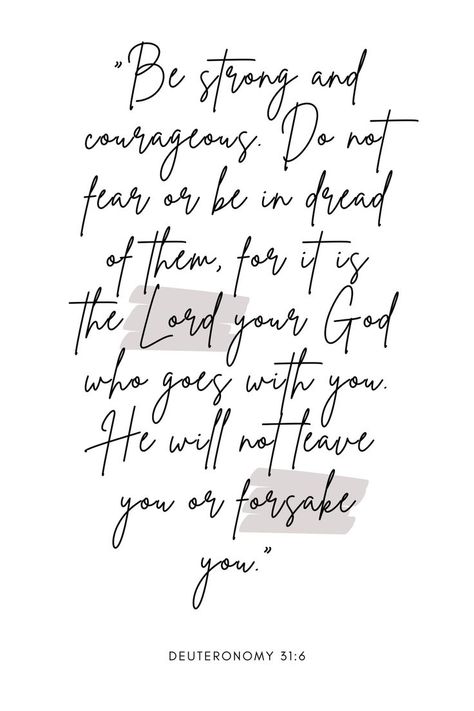 "Be strong and
courageous. Do not
fear or be in dread
of them, for it is
the Lord your God
who goes with you.
He will not leave
you or forsake
you."
DEUTERONOMY 31:6